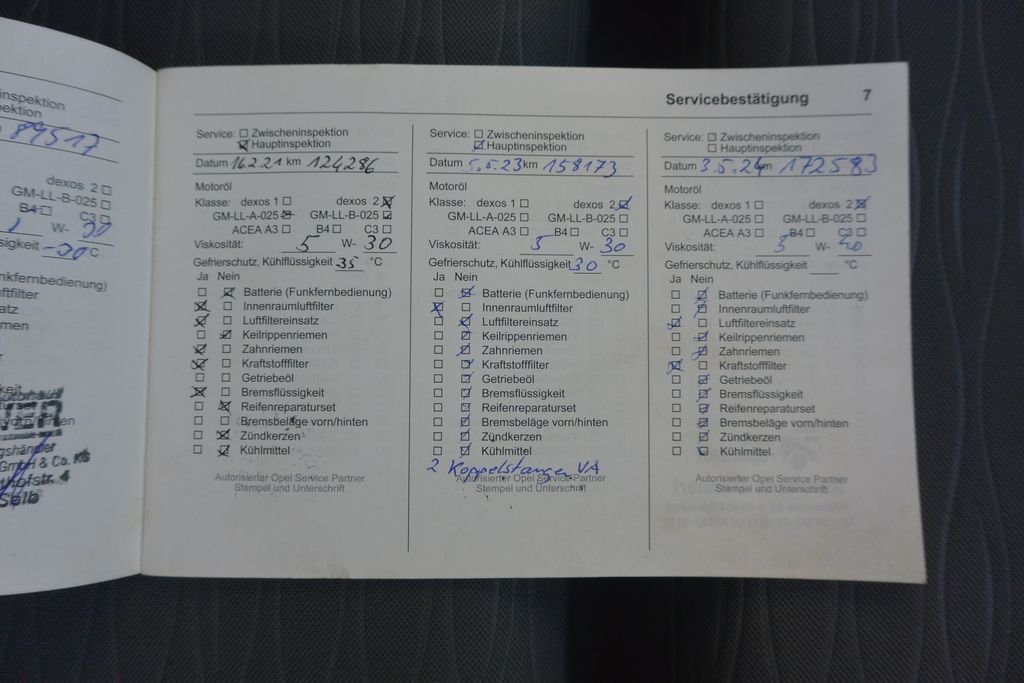 inspektion
ektion
89517
dexos 2 ☐
GM-LL-B-025 ☐
B4 ☐ C3 ☐
W- 30
ssigkeit -20 °C
nkfernbedienung)
ftfilter
atz
men
GmbH & Co. KG
hofstr. 4
Selb
Servicebestätigung 7
Service: ☐ Zwischeninspektion
☒ Hauptinspektion
Datum 16.2.21 km 124286
Motoröl
Klasse: dexos 1 ☐ dexos 2 ☒
GM-LL-A-025 ☒ GM-LL-B-025 ☒
ACEA A3 ☐ B4 ☐ C3 ☐
Viskosität: 5 W- 30
Gefrierschutz, Kühlflüssigkeit 35 °C
Ja Nein
☐ ☒ Batterie (Funkfernbedienung)
☒ ☐ Innenraumluftfilter
☒ ☐ Luftfiltereinsatz
☐ ☒ Keilrippenriemen
☒ ☐ Zahnriemen
☒ ☐ Kraftstofffilter
☐ ☐ Getriebeöl
☒ ☐ Bremsflüssigkeit
☐ ☒ Reifenreparaturset
☐ ☐ Bremsbeläge vorn/hinten
☐ ☒ Zündkerzen
☐ ☒ Kühlmittel
Autorisierter Opel Service Partner
Stempel und Unterschrift
Service: ☐ Zwischeninspektion
☒ Hauptinspektion
Datum 5.5.23 km 158173
Motoröl
Klasse: dexos 1 ☐ dexos 2 ☒
GM-LL-A-025 ☐ GM-LL-B-025 ☐
ACEA A3 ☐ B4 ☐ C3 ☐
Viskosität: 5 W- 30
Gefrierschutz, Kühlflüssigkeit 30 °C
Ja Nein
☐ ☒ Batterie (Funkfernbedienung)
☒ ☐ Innenraumluftfilter
☐ ☒ Luftfiltereinsatz
☐ ☒ Keilrippenriemen
☐ ☒ Zahnriemen
☐ ☒ Kraftstofffilter
☐ ☒ Getriebeöl
☐ ☒ Bremsflüssigkeit
☐ ☒ Reifenreparaturset
☐ ☒ Bremsbeläge vorn/hinten
☐ ☒ Zündkerzen
☐ ☒ Kühlmittel
2 Koppelstangen VA
Autorisierter Opel Service Partner
Stempel und Unterschrift
Service: ☐ Zwischeninspektion
☐ Hauptinspektion
Datum 3.5.24 km 172583
Motoröl
Klasse: dexos 1 ☐ dexos 2 ☒
GM-LL-A-025 ☐ GM-LL-B-025 ☐
ACEA A3 ☐ B4 ☐ C3 ☐
Viskosität: 5 W-
Gefrierschutz, Kühlflüssigkeit °C
Ja Nein
☐ ☒ Batterie (Funkfernbedienung)
☐ ☒ Innenraumluftfilter
☒ ☐ Luftfiltereinsatz
☐ ☒ Keilrippenriemen
☐ ☒ Zahnriemen
☒ ☐ Kraftstofffilter
☐ ☒ Getriebeöl
☐ ☒ Bremsflüssigkeit
☐ ☒ Reifenreparaturset
☐ ☒ Bremsbeläge vorn/hinten
☐ ☒ Zündkerzen
☐ ☒ Kühlmittel
Autorisierter Opel Service Partner
Stempel und Unterschrift